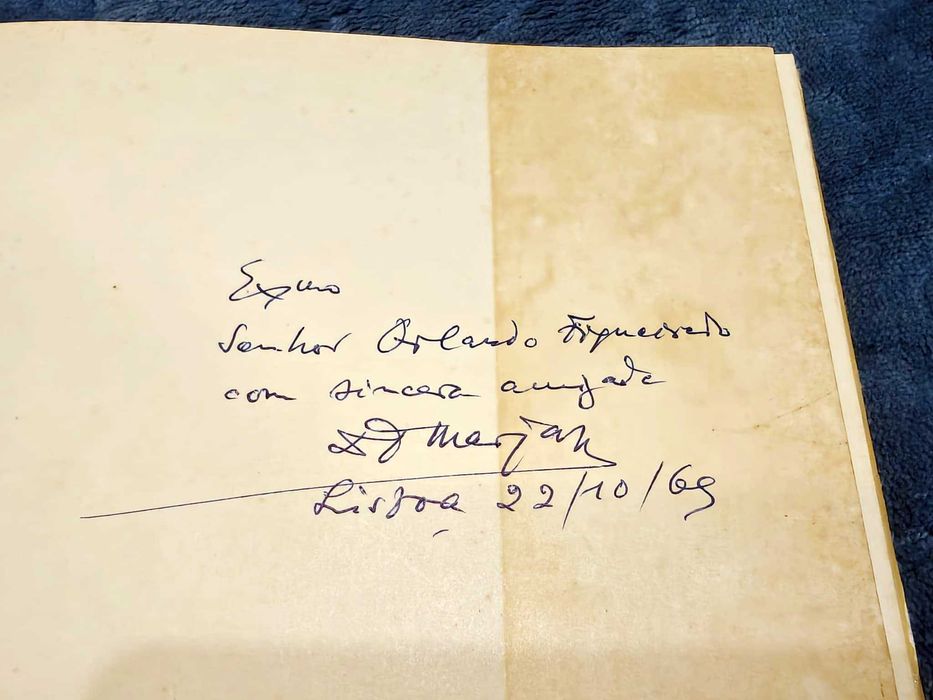 Exmo
Senhor Orlando Figueiredo
com sincera amizade
Marjan
Lisboa, 22/10/69